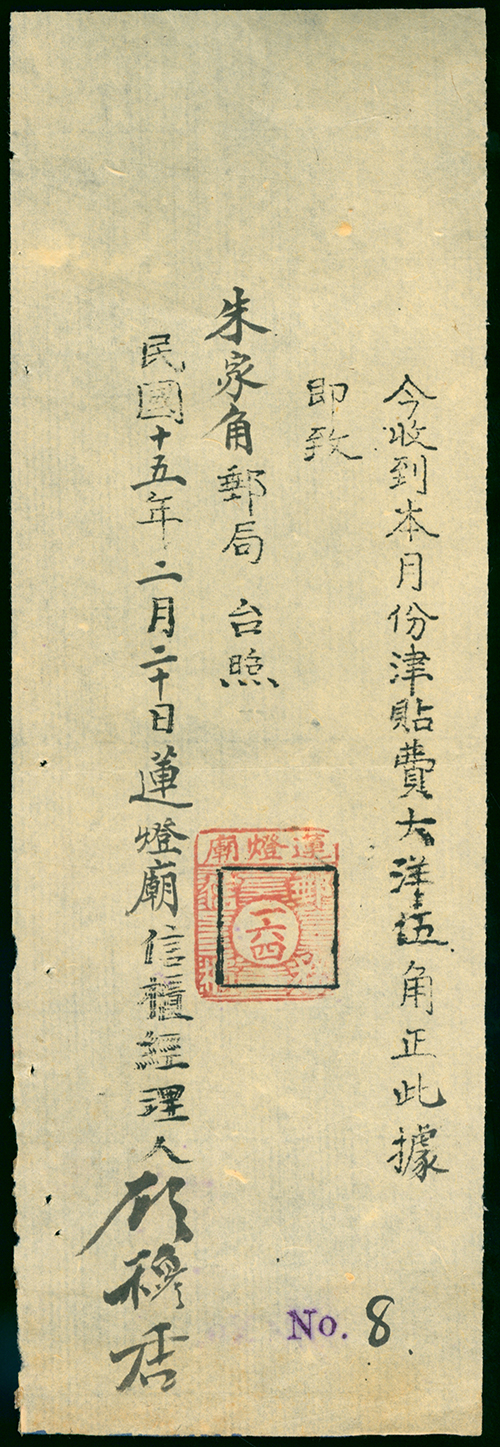 今收到本月份津貼費大洋伍角正此據
即致
朱家角郵局 台照
民國十五年二月二十日蓮燈廟信櫃經理人顧穆香
蓮燈廟
郵
一六四
No. 8